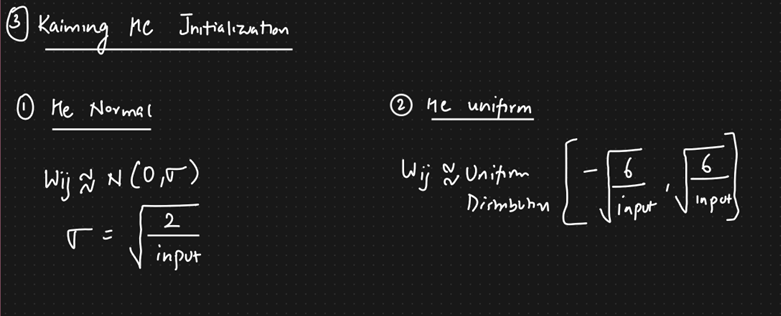 ③ Kaiming He Initialization
① He Normal
Wij ≈ N(0,σ)
σ = √(2/input)
② He uniform
Wij ≈ Uniform
Distribution [-√(6/input), √(6/input)]